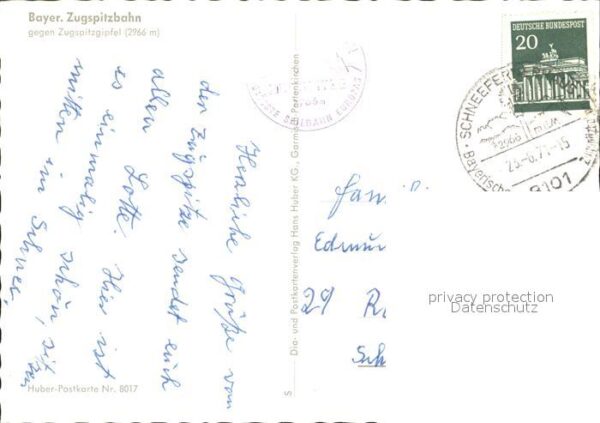 Bayer. Zugspitzbahn
gegen Zugspitzgipfel (2966 m)
Herzliche Grüße von
der Zugspitze sendet euch
allen Lotte. Hier ist
es einmalig schön, sitzen
mitten im Schnee.
Huber-Postkarte Nr. 8017
S
Dia- und Postkartenverlag Hans Huber KG., Garmisch-Partenkirchen
SEILBAHN EUROPAS
DEUTSCHE BUNDESPOST
20
SCHNEEFER
2966 m
23.-6.71-15
Bayerische
8101
Fam.
Edmu
29 R
Sch
privacy protection
Datenschutz